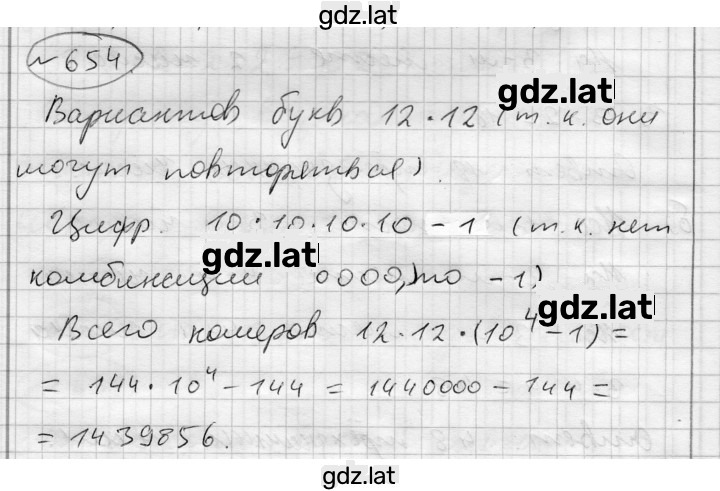 gdz.lat
№ 654
gdz.lat
Вариантов букв 12·12 (т.к. они
могут повторяться).
Цифр. 10·10·10·10 - 1 (т.к. нет
gdz.lat
комбинации 0000, то - 1.)
gdz.lat
Всего номеров 12·12·(10⁴-1) =
= 144·10⁴ - 144 = 1440000 - 144 =
= 1439856.
gdz.lat